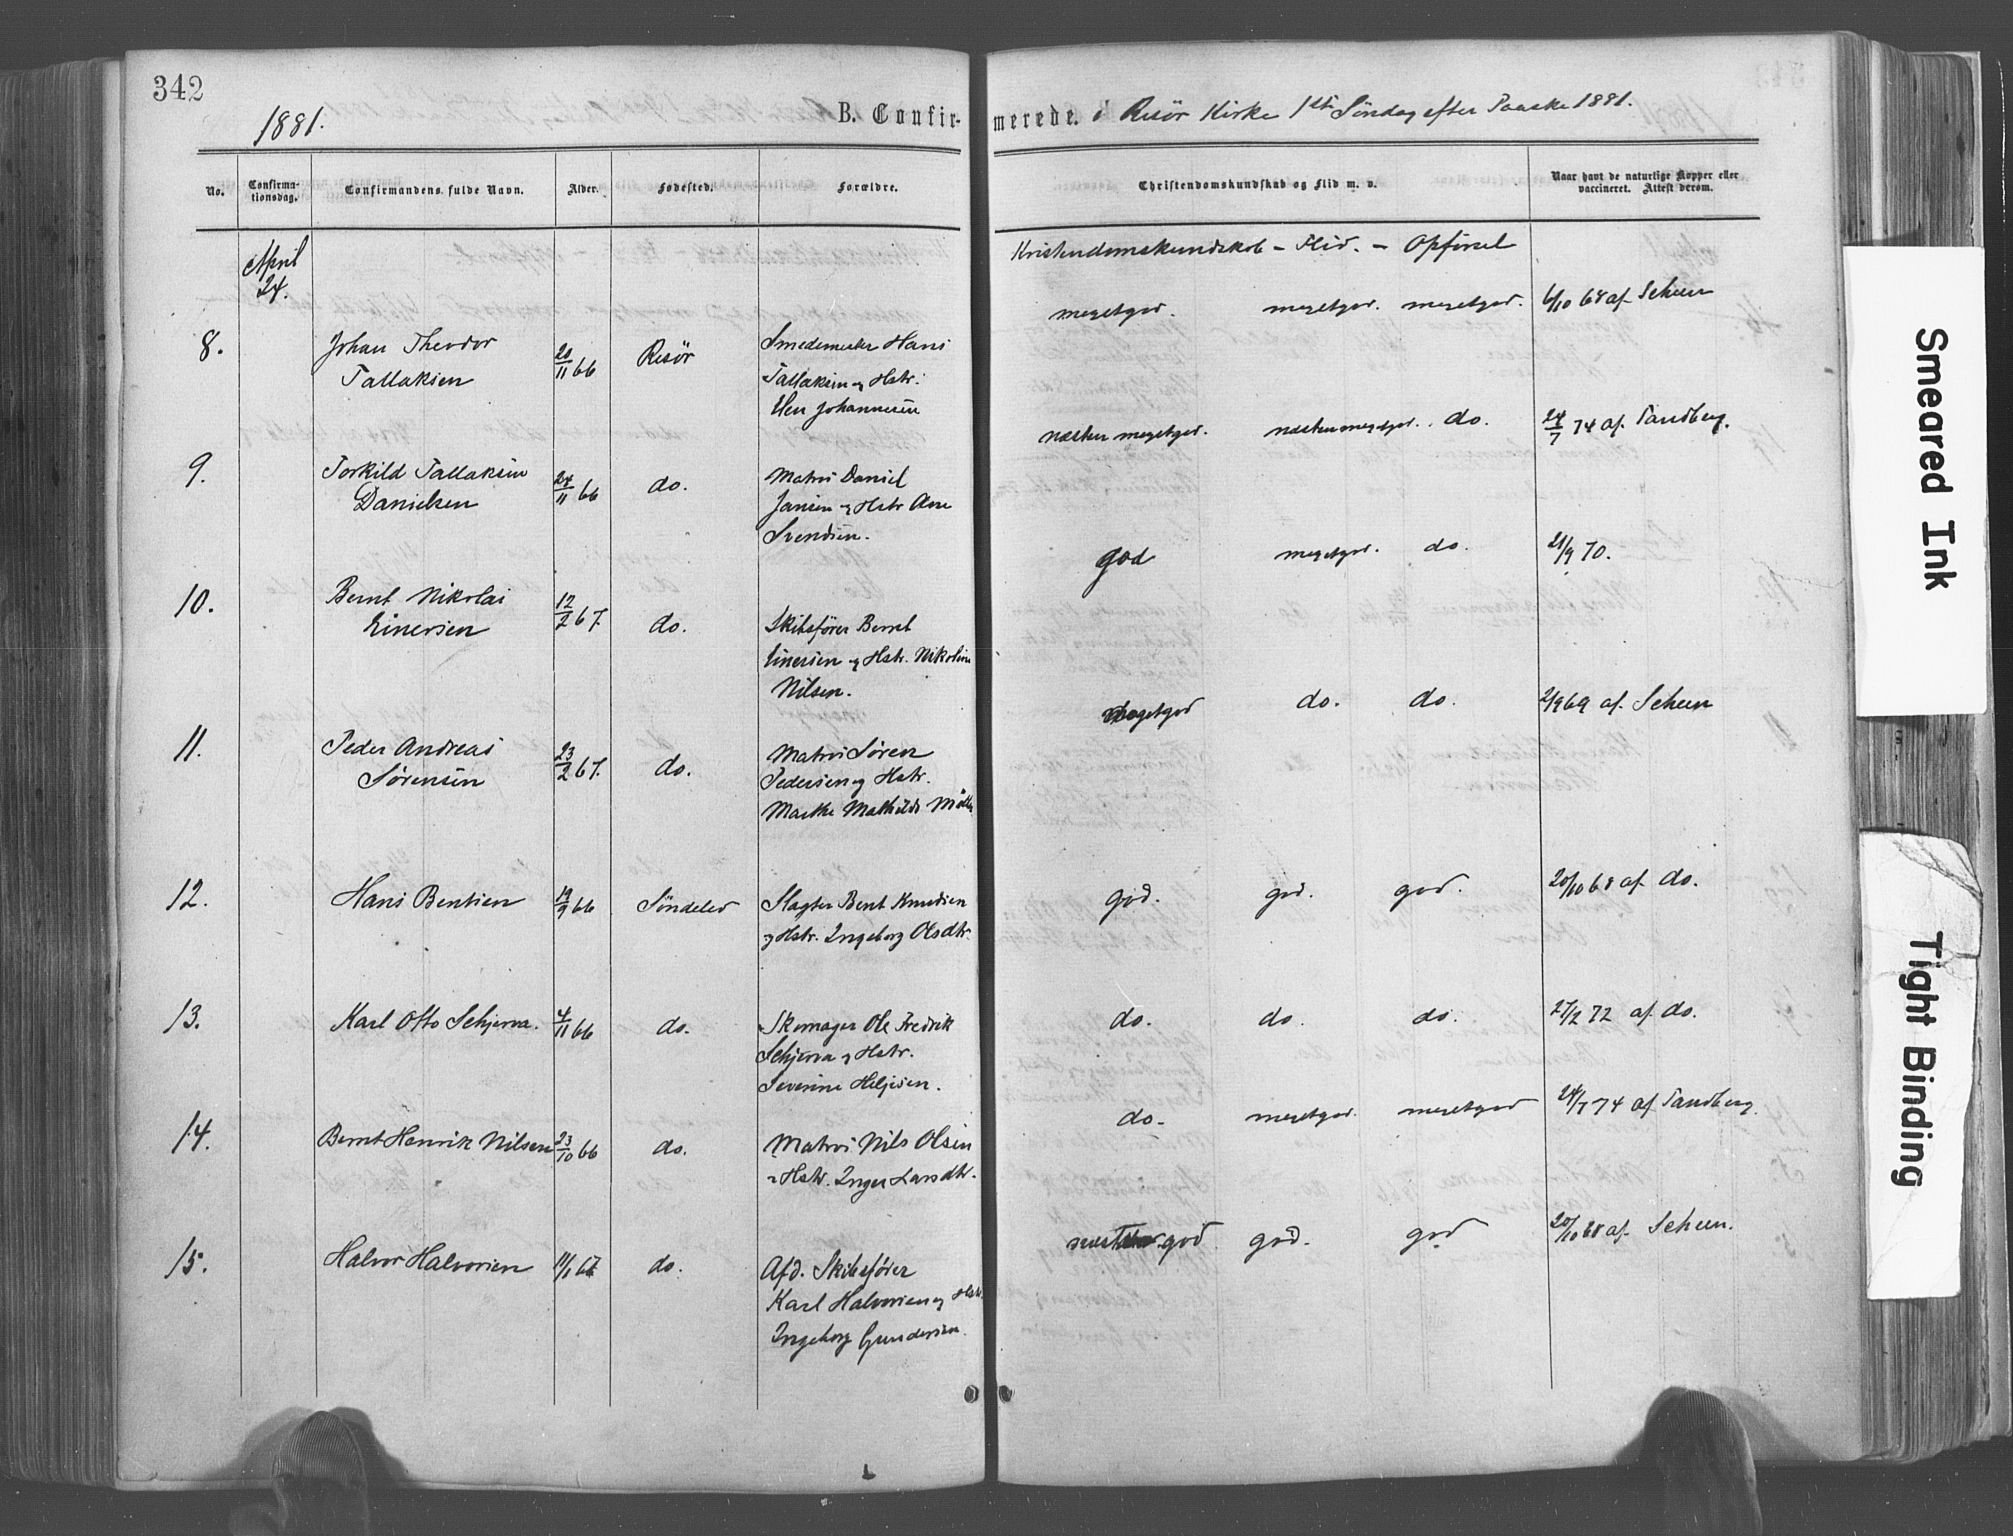 342
1881.
B. Confirmerede. i Risör Kirke 1ste Söndag efter Paaske 1881.
No.
Confirmationsdag.
Confirmandens fulde Navn.
Alder.
Fødested.
Forældre.
Christendomskundskab og Flid m. v.
Naar havt de naturlige Kopper eller vaccineret. Attest derom.
April
24.
Kristendomskundskab – Flid. – Opførsel
8.
Johan Theodor
Tallaksen
20/11 66
Risör
Smedemester Hans
Tallaksen og Hstr.
Elen Johannesen
megetgod. megetgod. megetgod.
6/10 68 af Scheen
9.
Torkild Tallaksen
Danielsen
24/11 66
do.
Matros Daniel
Jansen og Hstr Ane
Svendsen.
næsten megetgod. næsten megetgod. do.
24/7 74 af Sandberg.
10.
Bernt Nikolai
Einersen
12/2 67.
do.
Skibsfører Bernt
Einersen og Hstr. Nikoline
Nilsen.
god megetgod. do.
21/9 70.
11.
Peder Andreas
Sørensen
23/2 67.
do.
Matros Søren
Pedersen og Hstr.
Marthe Mathilde
megetgod do. do.
2/9 69 af Scheen
12.
Hans Bentsen
19/9 66
Söndeled
Slagter Bent Knudsen
og Hstr. Ingeborg Olsdtr.
god. god. god.
20/10 68 af do.
13.
Karl Otto Schjerva.
4/11 66
do.
Skomager Ole Fredrik
Schjerva og Hstr.
Severine Heljesen.
do. do. do.
27/2 72 af do.
14.
Bernt Henrik Nilsen
23/10 66
do.
Matros Nils Olsen
og Hstr. Inger Larsdtr.
do. megetgod. megetgod
24/7 74 af Sandberg.
15.
Halvor Halvorsen
11/1 67
do.
Afd. Skibsfører
Karl Halvorsen og Hstr.
Ingeborg Gundersen.
god god. god
20/10 68 af Scheen.
Smeared Ink
Tight Binding